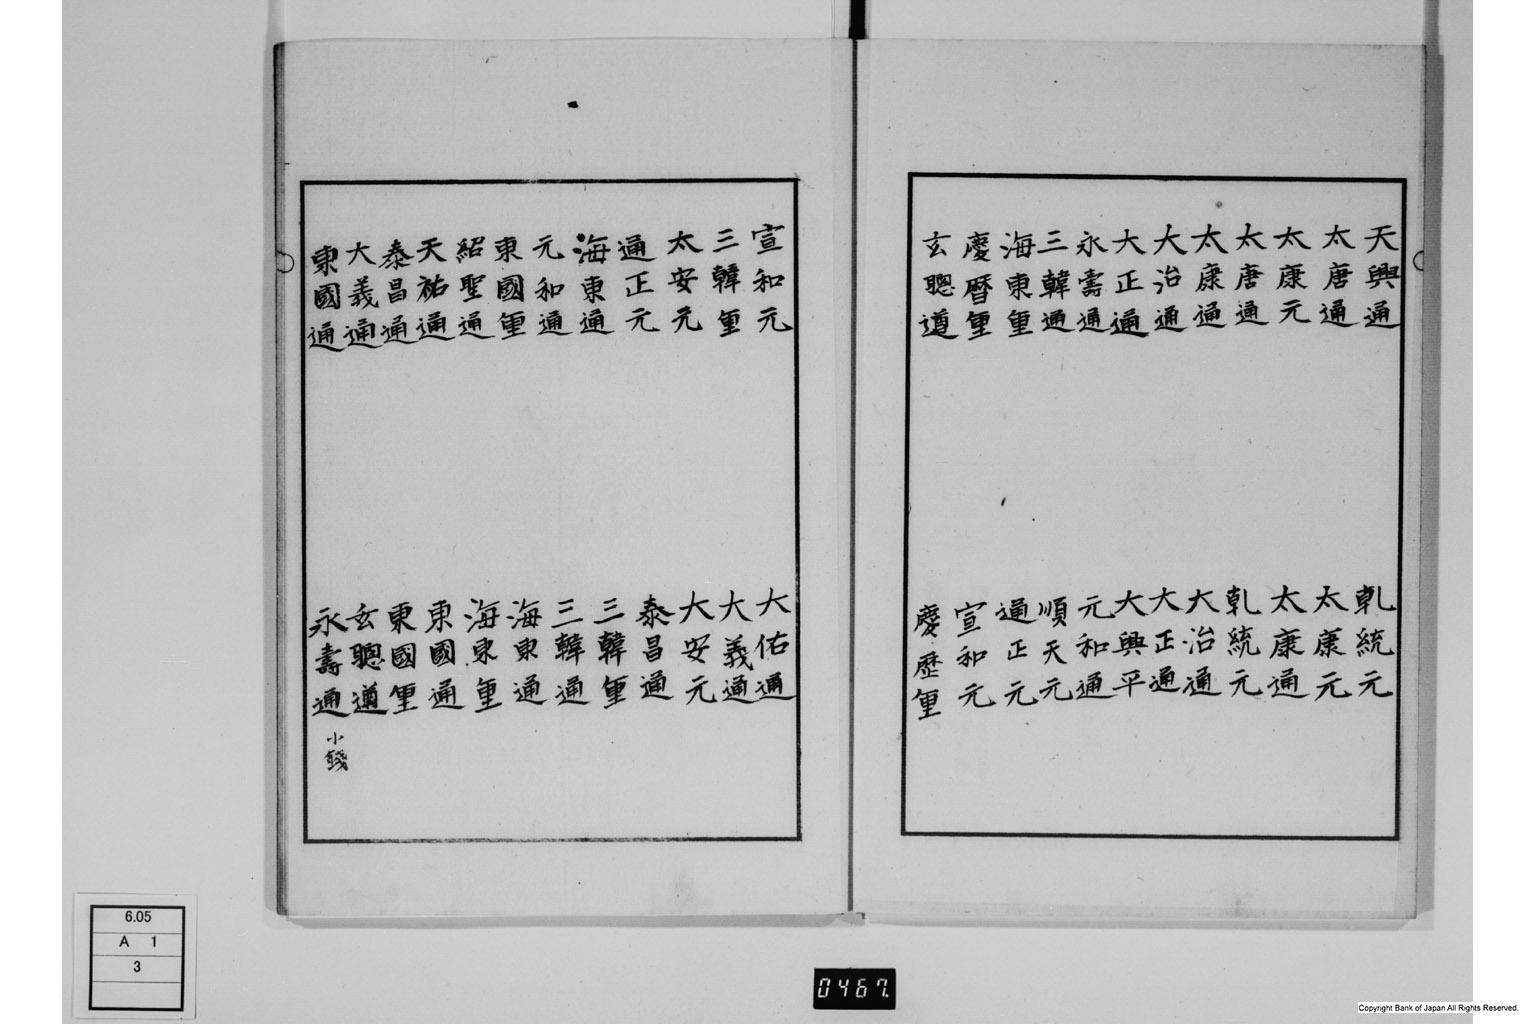 天興通
太唐通
太康元
太唐通
太康通
大治通
大正通
永壽通
三韓通
海東重
慶暦重
玄聰遵
乹統元
太康元
太康通
乹統元
大治通
大正通
大興平
元和通
順天元
通正元
宣和元
慶歷重
宣和元
三韓重
太安元
通正元
海東通
元和通
東國重
紹聖通
天祐通
泰昌通
大義通
東國通
大佑通
大義通
大安元
泰昌通
三韓重
三韓通
海東通
海東重
東國通
東國重
玄聰遵
永壽通 小錢
6.05
A 1
3
0467.
Copyright Bank of Japan All Rights Reserved.